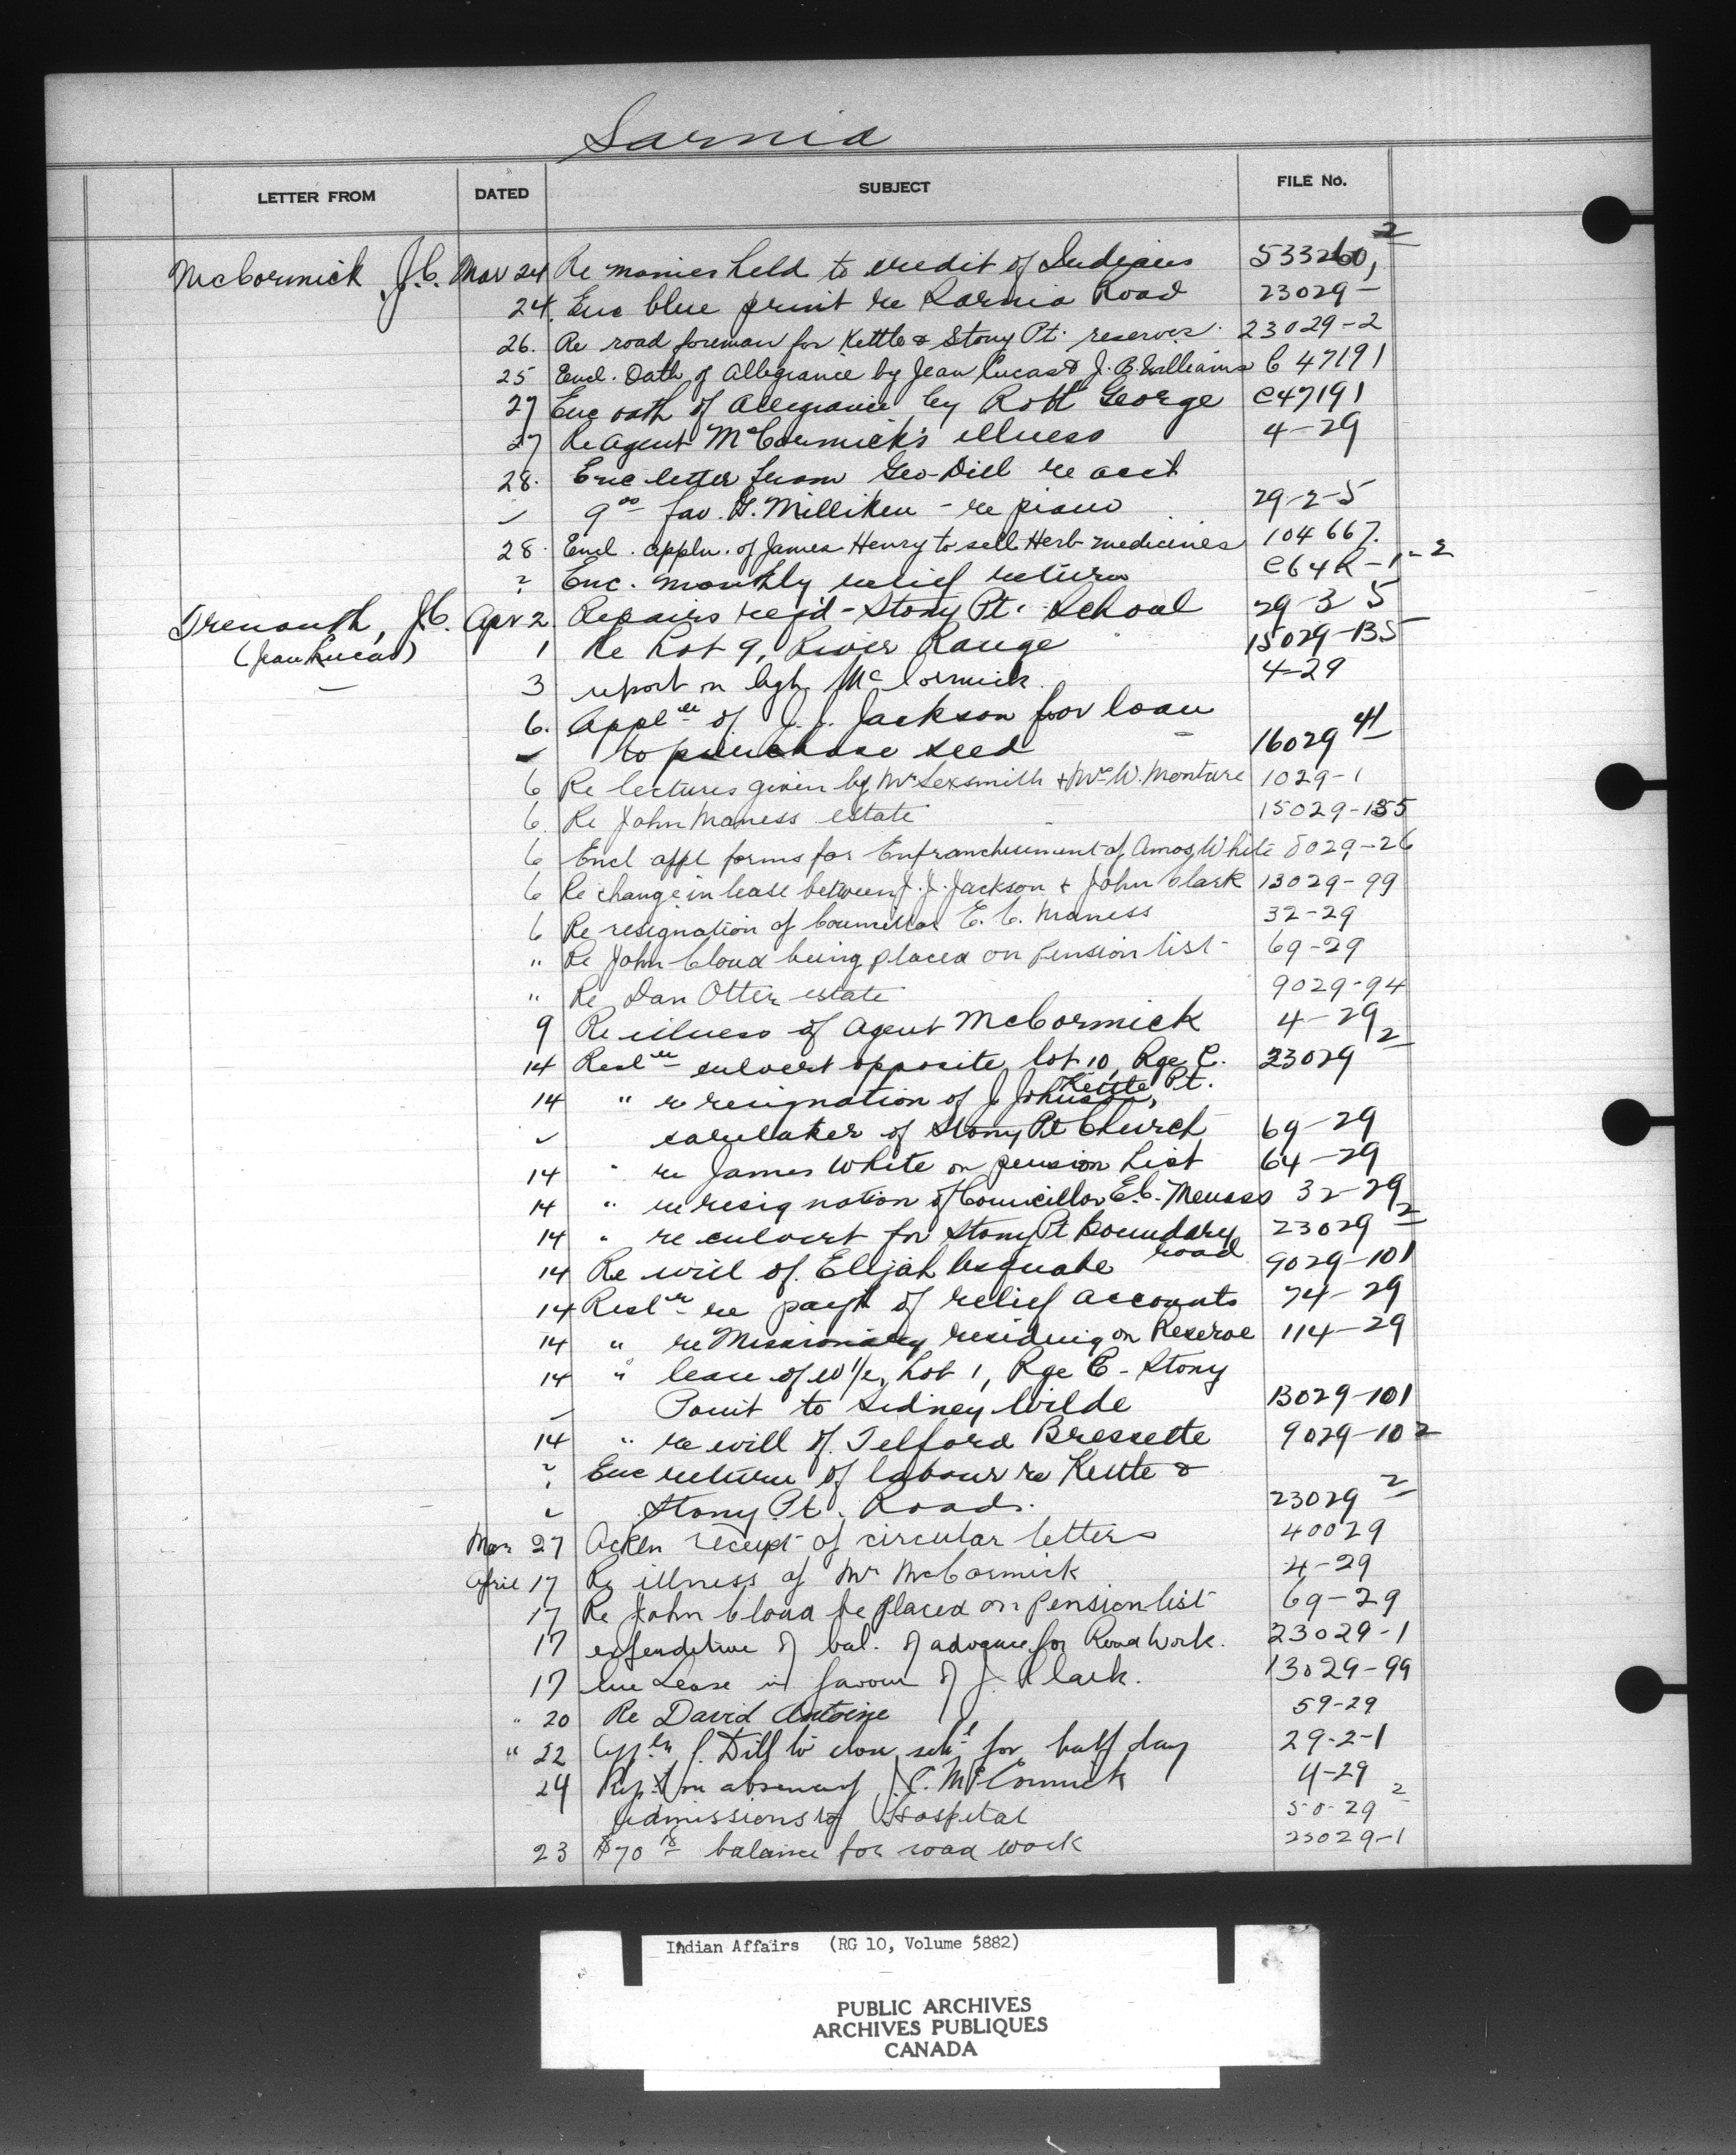 Sarnia
LETTER FROM DATED SUBJECT FILE No.
McCormick, J.C. Mar 24 Re monies held to credit of Indians 533260, 2
24. Enc blue print re Sarnia Road 23029 –
26. Re road foreman for Kettle & Stony Pt. reserves. 23029-2
25 Encl. Oath of Allegiance by Jean Lucas & J. B. Williams C 47191
27 Enc oath of Allegiance by Robt George C47191
27 Re Agent McCormick's illness 4-29
28. Enc letter from Geo Dill re acct
9 00 fav. G. Milliken - re piano 29-2-5
28. Encl. appln. of James Henry to sell Herb medicines 104667.
? Enc. monthly relief return C64R-1-2
Trenouth, J.C. Apr 2 Repairs req'd - Stony Pt. School 29-3 5
(Jean Lucas) 1 Re Lot 9, River Range 15029-135
3 report on Agt. McCormick. 4-29
6. Applen of J. J. Jackson for loan
to purchase seed 16029 41
6 Re lectures given by Mr Sexsmith & Mr W. Monture 1029-1
6. Re John Maness estate 15029-135
6 Encl appl forms for Enfranchisement of Amos White 8029-26
6 Re change in lease between J. J. Jackson & John Clark 13029-99
6 Re resignation of Councillor E. C. Maness 32-29
" Re John Cloud being placed on Pension list 69-29
" Re Dan Otter estate 9029-94
9 Re illness of Agent McCormick 4-29
14 Resln culvert opposite lot 10, Rge C. 23029 2
14 " re resignation of J Johnson, Kettle Pt.
caretaker of Stony Pt Church 69-29
14 " re James White on pension list 64-29
14 " re resignation of Councillor E.C. Meness 32-29
14 " re culvert for Stony Pt Boundary road 23029 2
14 Re will of Elijah Asquabe 9029-101
14 Resln re payt of relief accounts 74-29
14 " re Missionary residing on Reserve 114-29
14 " lease of W 1/2, Lot 1, Rge C - Stony
Point to Sidney Wilde 13029-101
14 " re will of Telford Bressette 9029-102
? Enc return of labour re Kettle &
Stony Pt. Roads. 23029 2
Mar 27 Ackn receipt of circular letters 40029
April 17 Re illness of Mr McCormick 4-29
17 Re John Cloud be placed on Pension list 69-29
17 expenditure of bal. of advance for Road Work. 23029-1
17 Enc Lease in favour of J. Clark. 13029-99
" 20 Re David Antoine 59-29
" 22 Appln J. Dill to close schl for half day 29-2-1
24 Rept on absence of J.C. McCormick 4-29
Admissions to Hospital 50-29 2
23 $70 18 balance for road work 23029-1
Indian Affairs (RG 10, Volume 5882)
PUBLIC ARCHIVES
ARCHIVES PUBLIQUES
CANADA